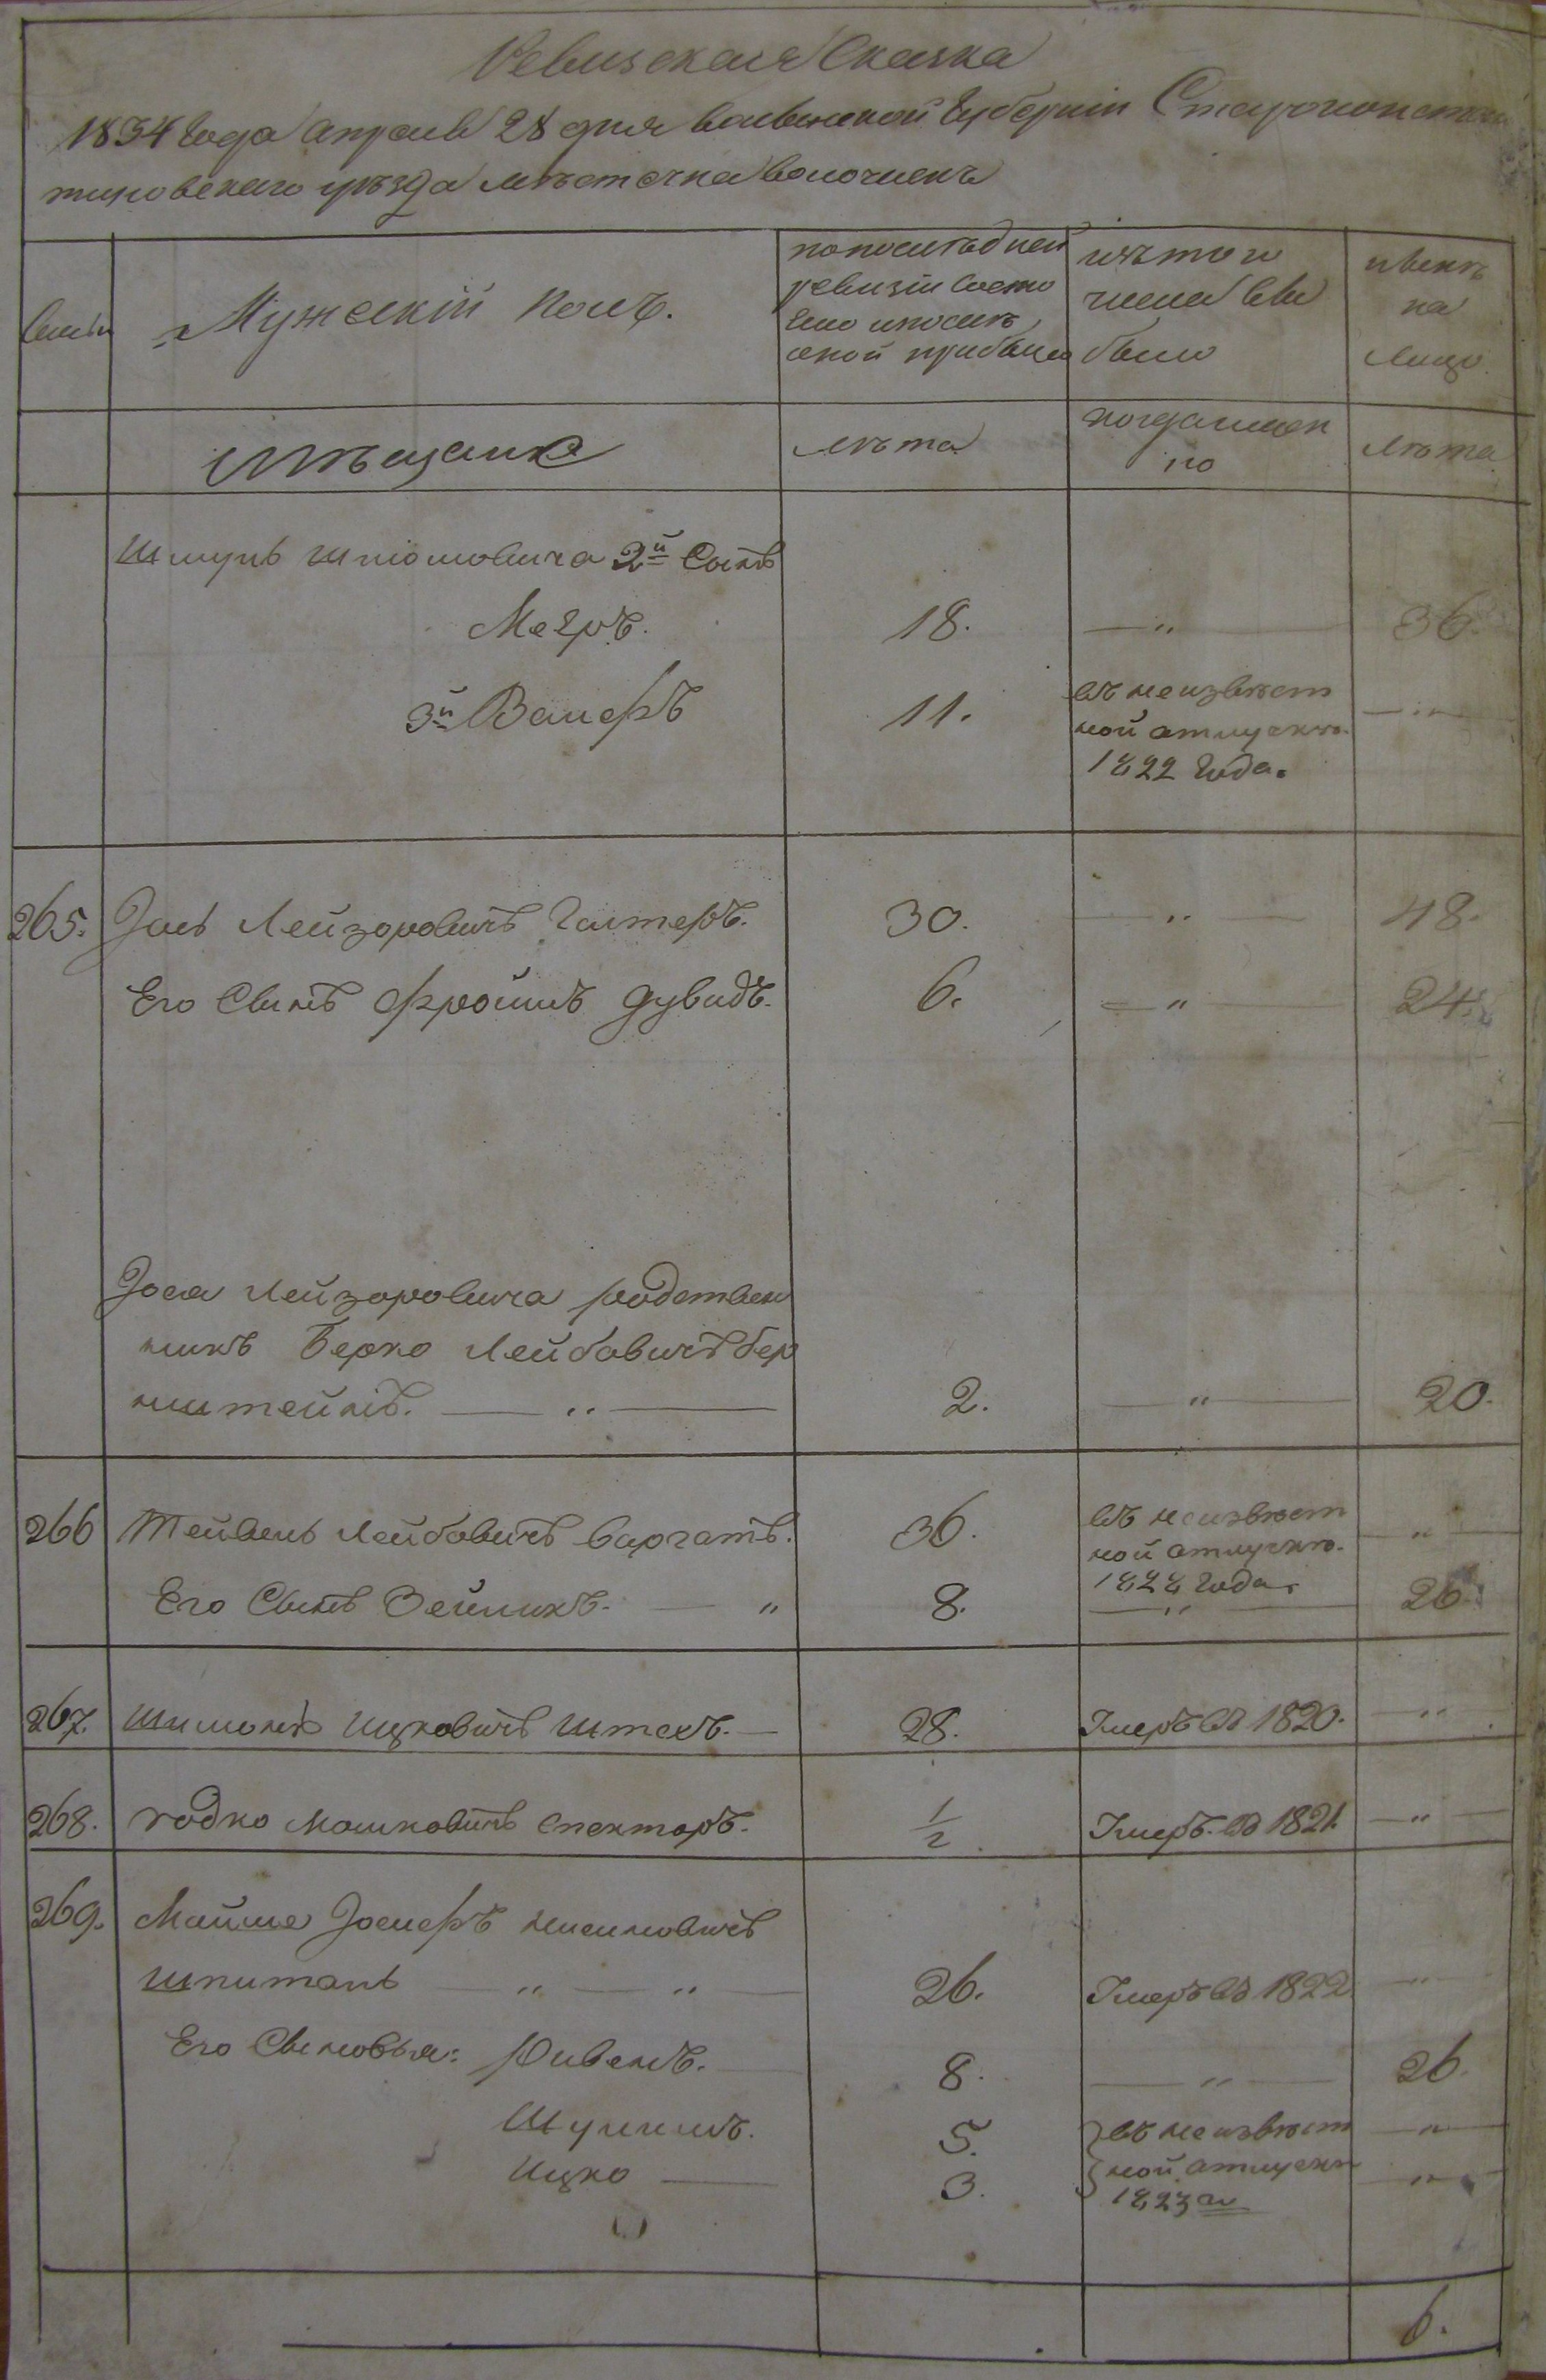 Ревизская Сказка
1834 Года апреля 28 дня волынской Губерніи Староконстан
тиновскаго уезда местечка волочискъ
Мужескій полъ.
по последней
ревизіи состо
яло и после
оной прибыло
изъ того
числа вы
было
ныне
на
лицо
Мещане
лета
когда имен
но
лета
Шмуль Шліомовича 2й Сынъ
Мееръ. 18. — " — 36.
3й Волфъ 11. въ неизвест — " —
ной отлучке
1822 Года.
265. Іось Лейзоровичъ Галтеръ. 30. — " — 48.
Его Сынъ Фроимъ Дувидъ. 6. — " — 24.
Іося Лейзоровича родствен
никъ Берко Лейбовичъ бер
нштейнъ. — " — 2. — " — 20.
266 Тейвель Лейбовичъ 36. въ неизвест — " —
ной отлучке.
1828 Года.
Его Сынъ Зейликъ. — " 8. — " — 26.
267. Шимонъ Ицковичъ Штехъ. — 28. Умеръ въ 1820. — " —
268. Юдко Мошковичъ Спекторъ. 1/2 Умеръ въ 1821. — " —
269. Мойше Іосифъ
Шпиталь — " — " — 26. Умеръ въ 1822 — " —
Его Сыновья: Рувенъ. — 8. — " — 26.
Шулимъ. 5. въ неизвест — " —
Ицко — 3. ной отлучке — " —
1823 го
6.